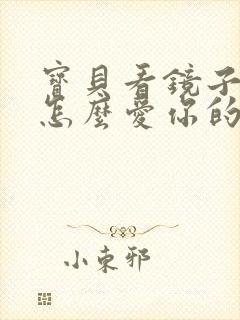 寶貝看鏡子
怎麼愛你的
小束邪